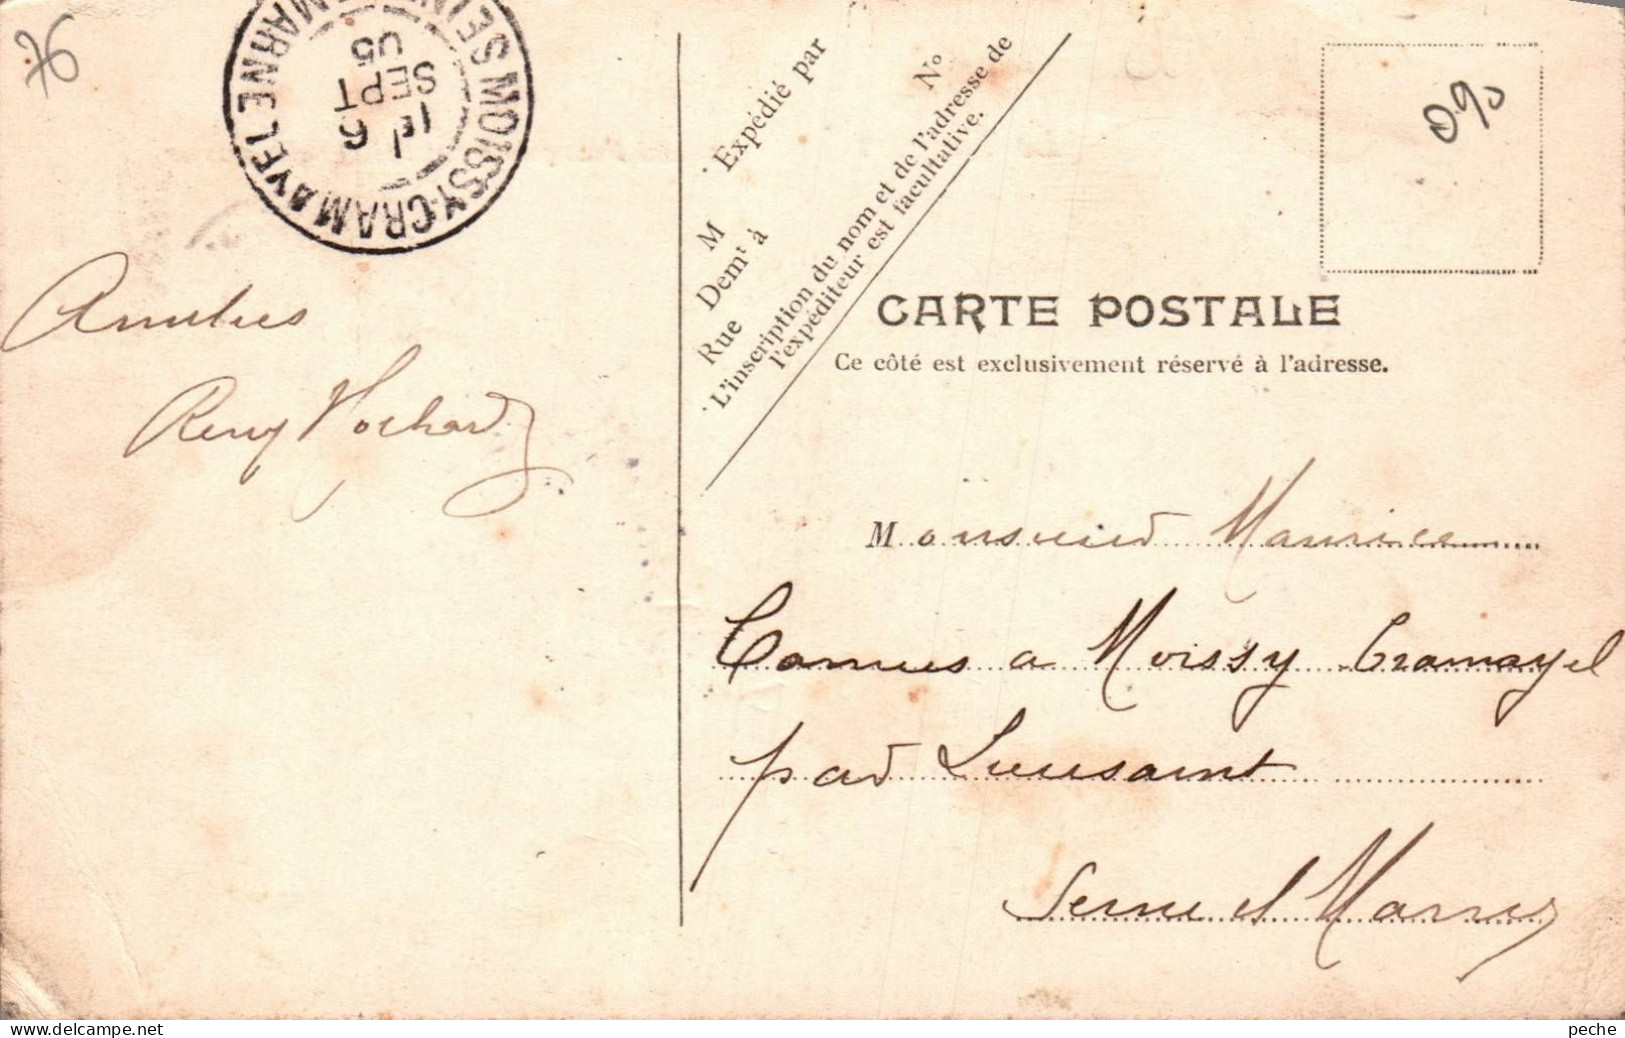 76
MOISSY-CRAMAYEL SEINE MARNE
6
SEPT
05
Expédié par
M
Demt à
Rue
No
L'inscription du nom et de l'adresse de
l'expéditeur est facultative.
CARTE POSTALE
Ce côté est exclusivement réservé à l'adresse.
Amities
Remy
Monsieur Maurice
Camus a Moissy Cramayel
par Lieusaint
Seine et Marne
www.delcampe.net
peche